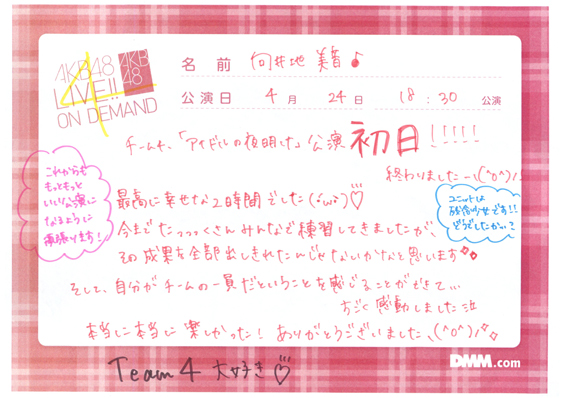 AKB48
LIVE!!
ON DEMAND
AKB
48
4
名前 向井地 美音♪
公演日 4月 24日 18:30 公演
チーム4、「アイドルの夜明け」公演 初日!!!!!
終わりましたー\(^o^)/
これからも
もっともっと
いい公演に
なるように
頑張ります!
最高に幸せな2時間でした(・ω・)♡
ユニットは
残念少女です!!
どうでしたかっ?
今までたっっっくさんみんなで練習してきましたが、
その成果を全部出しきれたんじゃないかなと思います
そして、自分がチームの一員だということを感じることができて…
すごく感動しました
本当に本当に楽しかった!ありがとうございました\(^o^)/
Team 4 大好き♡
DMM.com